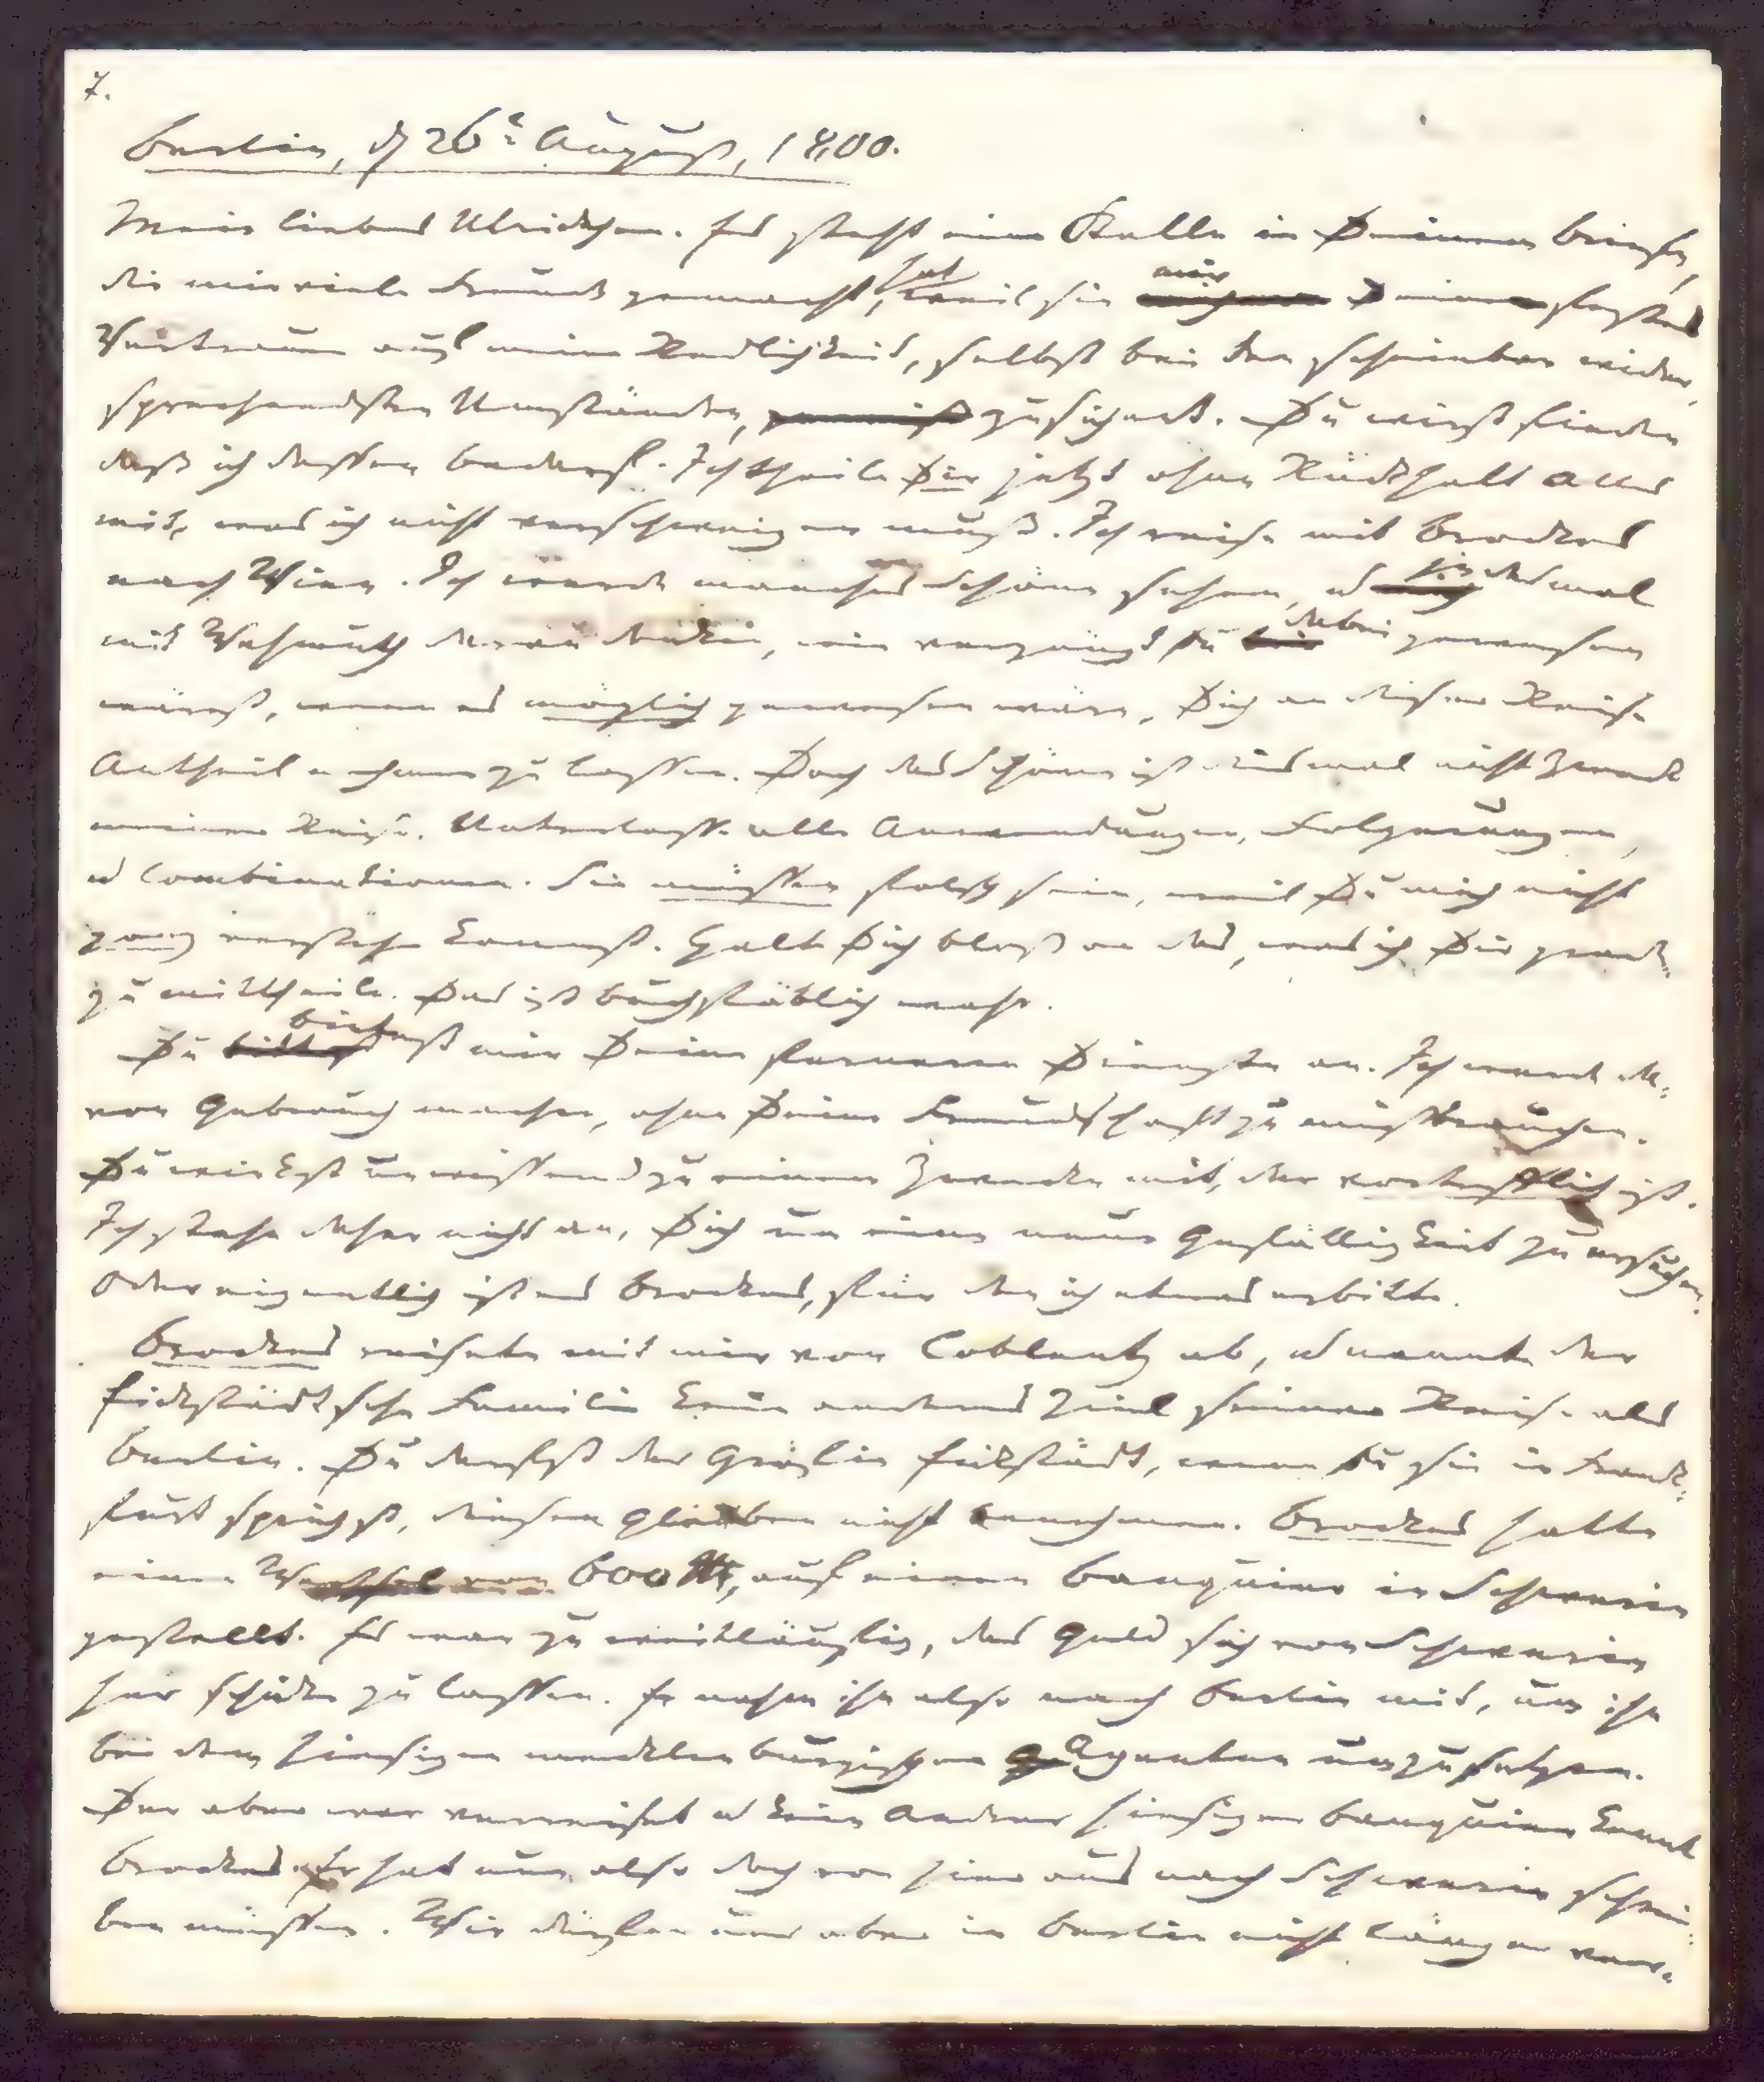 7.
Berlin, d 26t August, 1800.
Mein liebes Ulrickchen. Es steht eine Stelle in Deinem Briefe,
die mir viele Freude gemacht, hat weil sie mir Dein festes
Vertrauen auf meine Redlichkeit, selbst bei den scheinbar wider,
sprechendsten Umständen, zusichert. Du wirst finden
daß ich dessen bedarf. Ich theile Dir jetzt ohne Rückhalt Alles
mit, was ich nicht verschweigen muß. Ich reise mit Brockes
nach Wien. Ich werde manches Schöne sehen, u jedesmal
mit Wehmuth daran denken, wie vergnügt Du dabei gewesen
wärest, wenn es möglich gewesen wäre, Dich an dieser Reise
Antheil nehmen zu lassen. Doch das Schöne ist diesmal nicht Zweck
meiner Reise. Unterlasse alle Anwendungen, Folgerungen,
u Combinationen. Sie müssen falsch sein, weil Du mich nicht
ganz verstehen kannst. Halte Dich bloß an das, was ich Dir grade
zu mittheile. Das ist buchstäblich wahr.
Du bietest mir Deine fernern Dienste an. Ich werde da-
von Gebrauch machen, ohne Deine Freundschaft zu mißbrauchen.
Du wirkst unwissend zu einem Zwecke mit, der vortrefflich ist.
Ich stehe daher nicht an, Dich um eine neue Gefälligkeit zu ersuchen.
Oder eigentlich ist es Brockes, für den ich etwas erbitte.
Brockes reisete mit mir von Coblentz ab, u nannte der
Eickstädtschen Familie kein anderes Ziel seiner Reise als
Berlin. Du darfst der Gräfin Eikstädt, wenn Du sie in Frank-
furt sprichst, diesen Glauben nicht benehmen. Brockes hatte
einen Wechsel von 600 Rth, auf einen Banquier in Schwerin
gestellt. Es war zu weitläufig, das Geld sich von Schwerin
her schicken zu lassen. Er nahm ihn also nach Berlin mit, um ihn
bei dem hiesigen mecklenburgischen Agenten umzusetzen.
Der aber war verreiset u kein Anderer hiesiger Banquier kennt
Brockes. Er hat nun also doch von hier aus nach Schwerin schrei-
ben müssen. Wir dürfen uns aber in Berlin nicht länger ver-